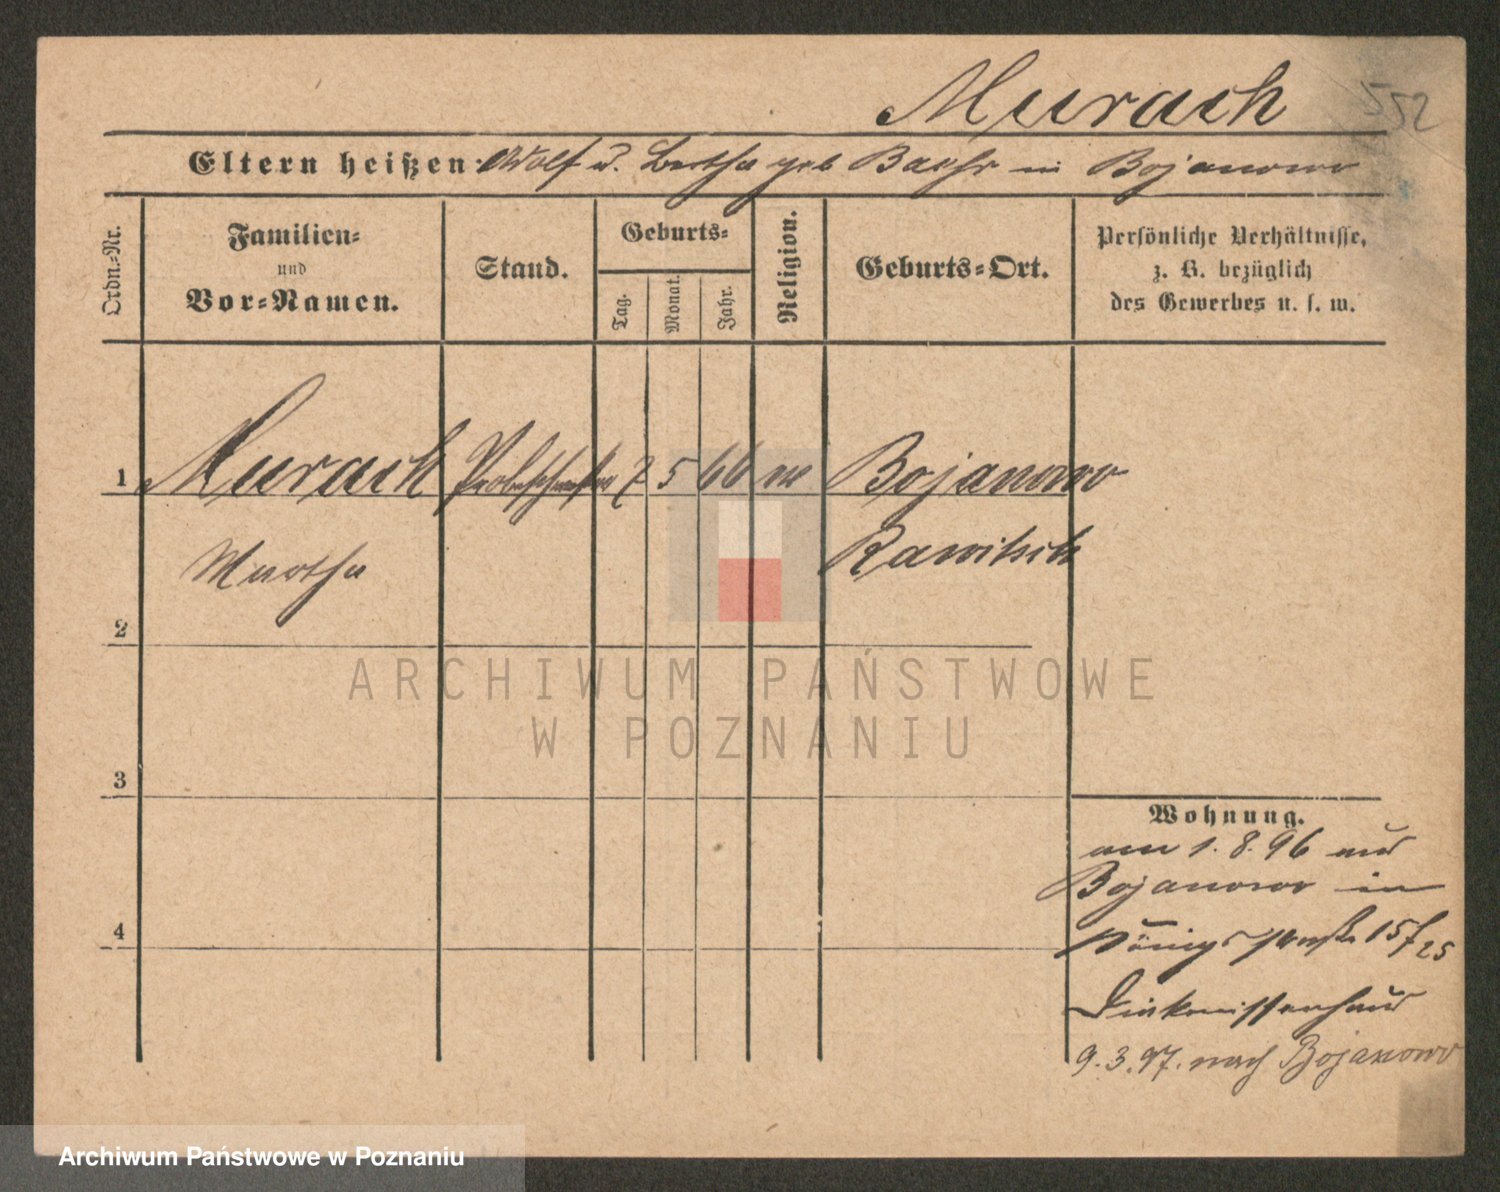 Murach
552
Eltern heißen: Wolf u. Bertha geb Baehr in Bojanowo
Ordn.-Nr.
Familien-
und
Vor-Namen.
Stand.
Geburts-
Tag.
Monat.
Jahr.
Religion.
Geburts-Ort.
Persönliche Verhältnisse,
z. B. bezüglich
des Gewerbes u. s. w.
1 Murach Probeschwester 7 5 66 Bojanowo
Martha Rawitsch
2
3
4
Wohnung.
am 1. 8. 96 aus
Bojanowo in
Königsstraße 15/25
Diakonissenhaus
9. 3. 97. nach Bojanowo
ARCHIWUM PAŃSTWOWE
W POZNANIU
Archiwum Państwowe w Poznaniu